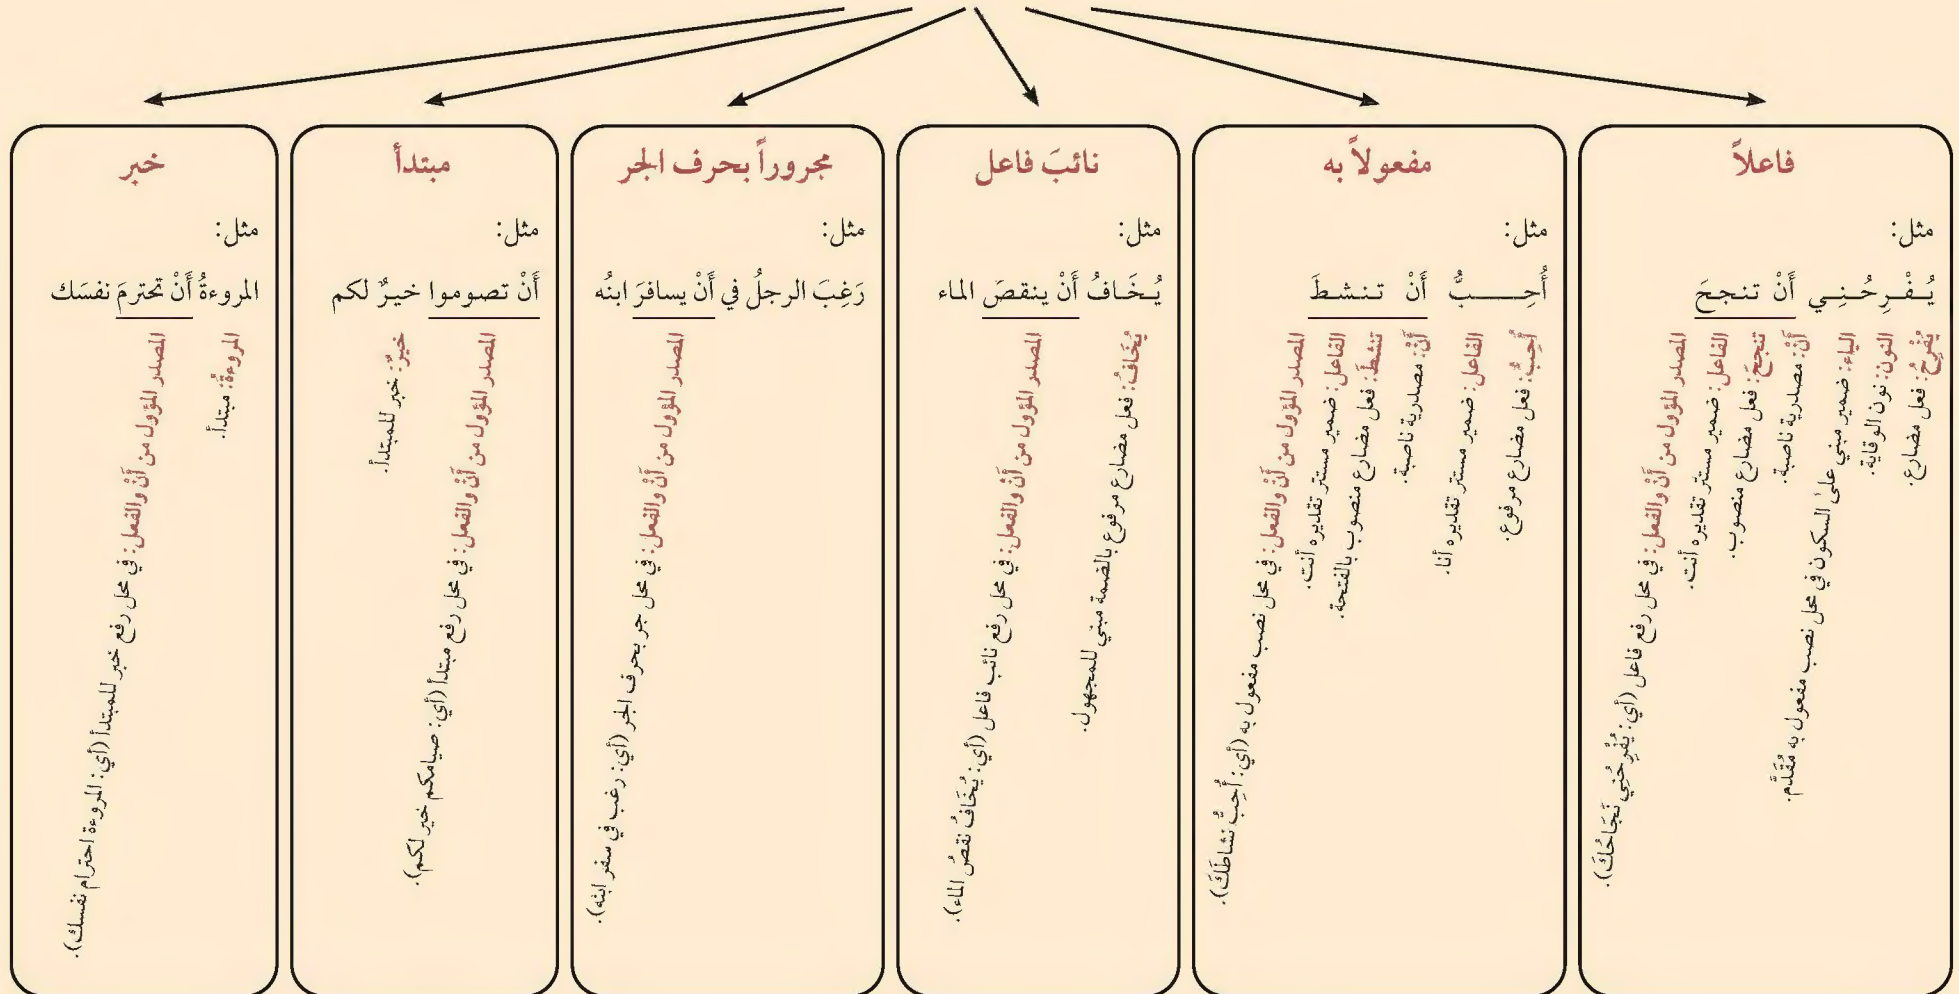 فاعلاً
مثل:
يُـفْـرِحُـنِـي أَنْ تنجحَ
يُفْرِحُ: فعل مضارع.
النون: نون الوقاية.
الياء: ضمير مبني على السكون في محل نصب مفعول به مُقَدَّم.
أَنْ: مصدرية ناصبة.
تنجحَ: فعل مضارع منصوب.
الفاعل: ضمير مستتر تقديره أنت.
المصدر المؤول من أَنْ والفعل: في محل رفع فاعل (أي: يُفْرِحُنِي نَجَاحُكَ).
مفعولاً به
مثل:
أُحِـــــبُّ أَنْ تـنـشـطَ
أُحِبُّ: فعل مضارع مرفوع.
الفاعل: ضمير مستتر تقديره أنا.
أَنْ: مصدرية ناصبة.
تنشطَ: فعل مضارع منصوب بالفتحة.
الفاعل: ضمير مستتر تقديره أنت.
المصدر المؤول من أَنْ والفعل: في محل نصب مفعول به (أي: أُحِبُّ نشاطَكَ).
نائبَ فاعل
مثل:
يُـخَـافُ أَنْ ينقصَ الماء
يُخَافُ: فعل مضارع مرفوع بالضمة مبني للمجهول.
المصدر المؤول من أَنْ والفعل: في محل رفع نائب فاعل (أي: يُخَافُ نقصُ الماء).
مجروراً بحرف الجر
مثل:
رَغِبَ الرجلُ في أَنْ يسافرَ ابنُه
المصدر المؤول من أَنْ والفعل: في محل جر بحرف الجر (أي: رغب في سفر ابنه).
مبتدأ
مثل:
أَنْ تصوموا خيرٌ لكم
المصدر المؤول من أَنْ والفعل: في محل رفع مبتدأ (أي: صيامكم خير لكم).
خيرٌ: خبر للمبتدأ.
خبر
مثل:
المروءةُ أَنْ تحترمَ نفسَك
المروءةُ: مبتدأ.
المصدر المؤول من أَنْ والفعل: في محل رفع خبر للمبتدأ (أي: المروءة احترام نفسك).